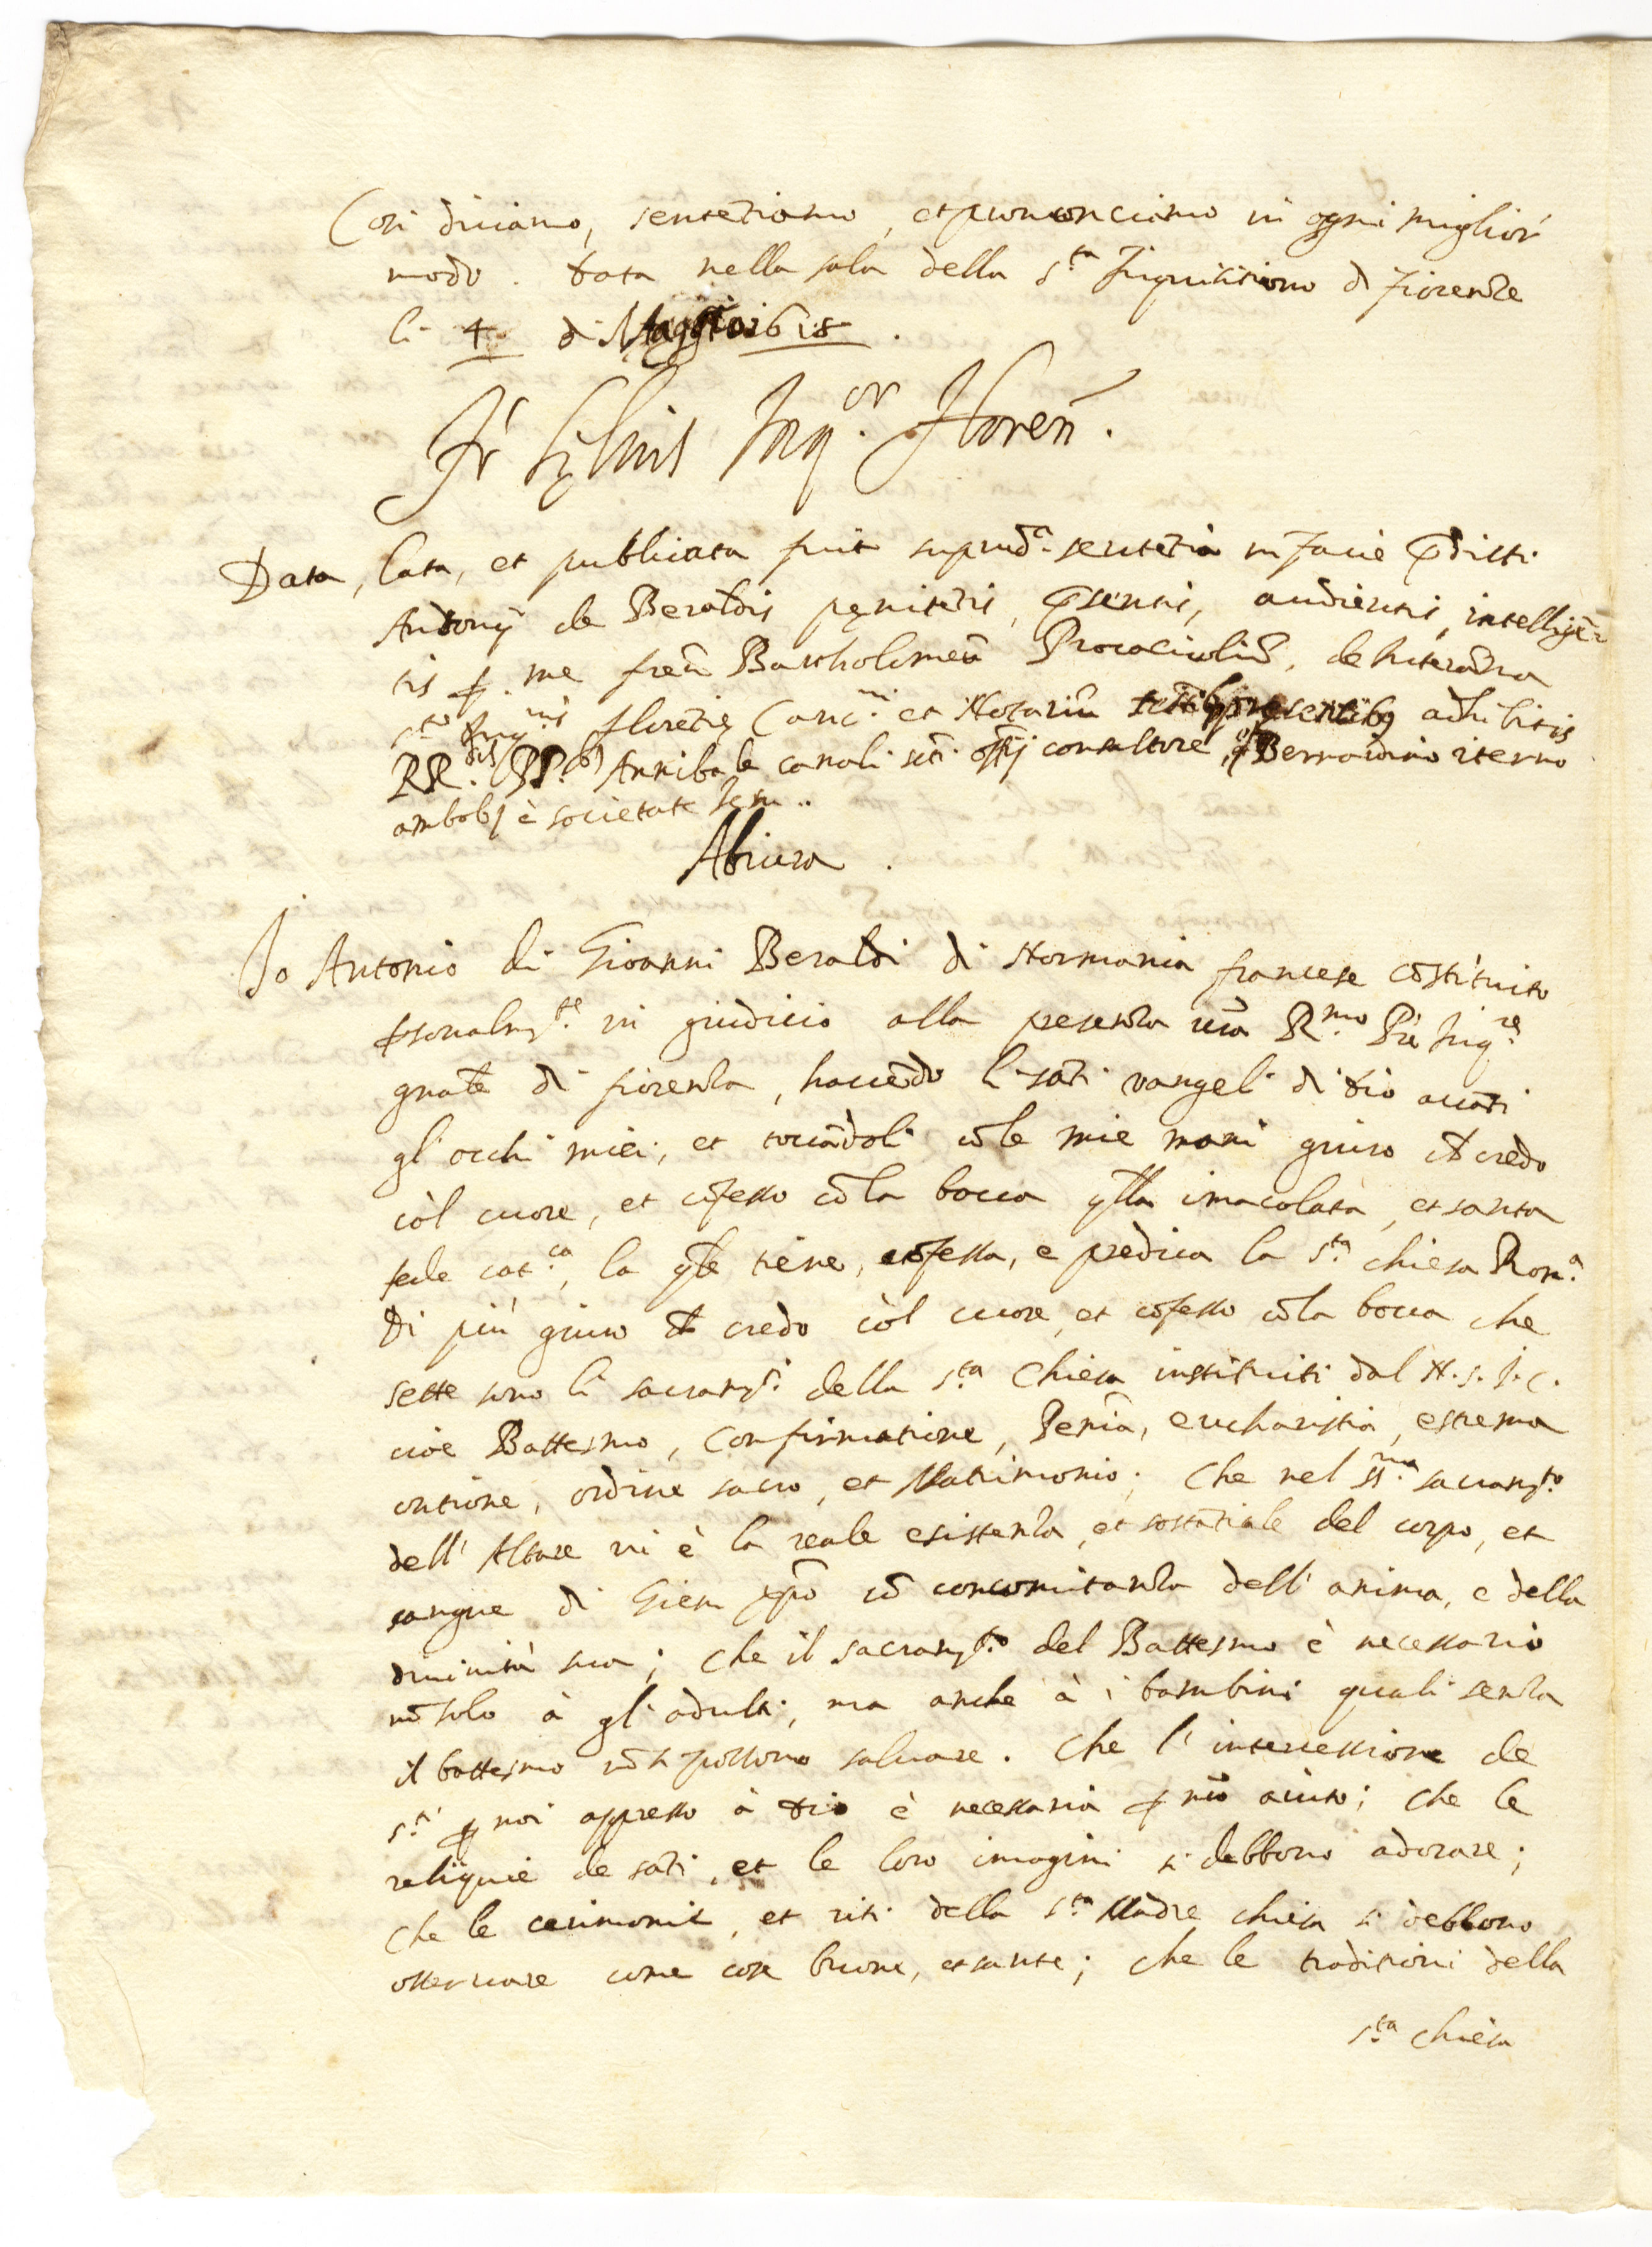 Cosi diciamo, sentētiamo, et prononciamo in ogni miglior
modo. Data nella sala della s.ta Inquisitione di Fiorenza
li 4 di Maggio 1618.
Fr Inq.or Floren.
Data, lata, et publicata fuit suprad.a sententia in facie p̄dicti
Antonij de Beraldis pęnitētis, p̄sentis, audientis, intelligē=
tis p. me frem̄ Bartholomeū de
s.tę Inq.nis Florētię Canc.m et Notariū testib9 presentib9 adhibitis
RR.dis PP.b9 Annibale canali scti offij consultore, et Bernardino
ambob9 è societate Jesu..
Abiura.
Io Antonio di Giovanni Beraldi di Normania francese cōstituito
p̱sonalm.te in giudicio alla presenza vrā R.mo Prē Inq.re
gn̄ale di fiorenza, havēdo li sāti vangeli di Dio avāti
gl'occhi miei, et toccādoli cō le mie mani giuro ch̄ credo
còl cuore, et cōfesso cō la bocca q̄lla imacolata, et santa
fede cat.ca, la q̄le tiene, cōfessa, e predica la s.ta chiesa Rom.a
Di più giuro ch̄ credo còl cuore, et cōfesso cō la bocca che
sette sono li sacram.ti della s.ta Chiesa instituiti dal N.S.J.C.
cioè Battesmo, Confirmatione, Peniā, eucharistia, estrema
ontione, ordine sacro, et Matrimonio; Che nel ss.mo sacram.to
dell'Altare vi è la reale esistenza, et sostātiale del corpo, et
sangue di Giesu xp̄o cō concomitanza dell'anima, e della
divinità sua; Che il sacram.to del Battesmo è necessario
nō solo à gl'adulti, ma anche à i bambini quali senza
il battesmo nō si possono salvare. Che l'intercessione de
s.ti p̱ noi appresso à Dio è necessaria p̱ nrō aiuto; Che le
reliquie de sāti, et le loro imagini si debbono adorare;
Che le cerimonie, et riti della s.ta Madre chiesa si debbono
osservare come cose buone, et sante; Che le traditioni della
s.ta chiesa